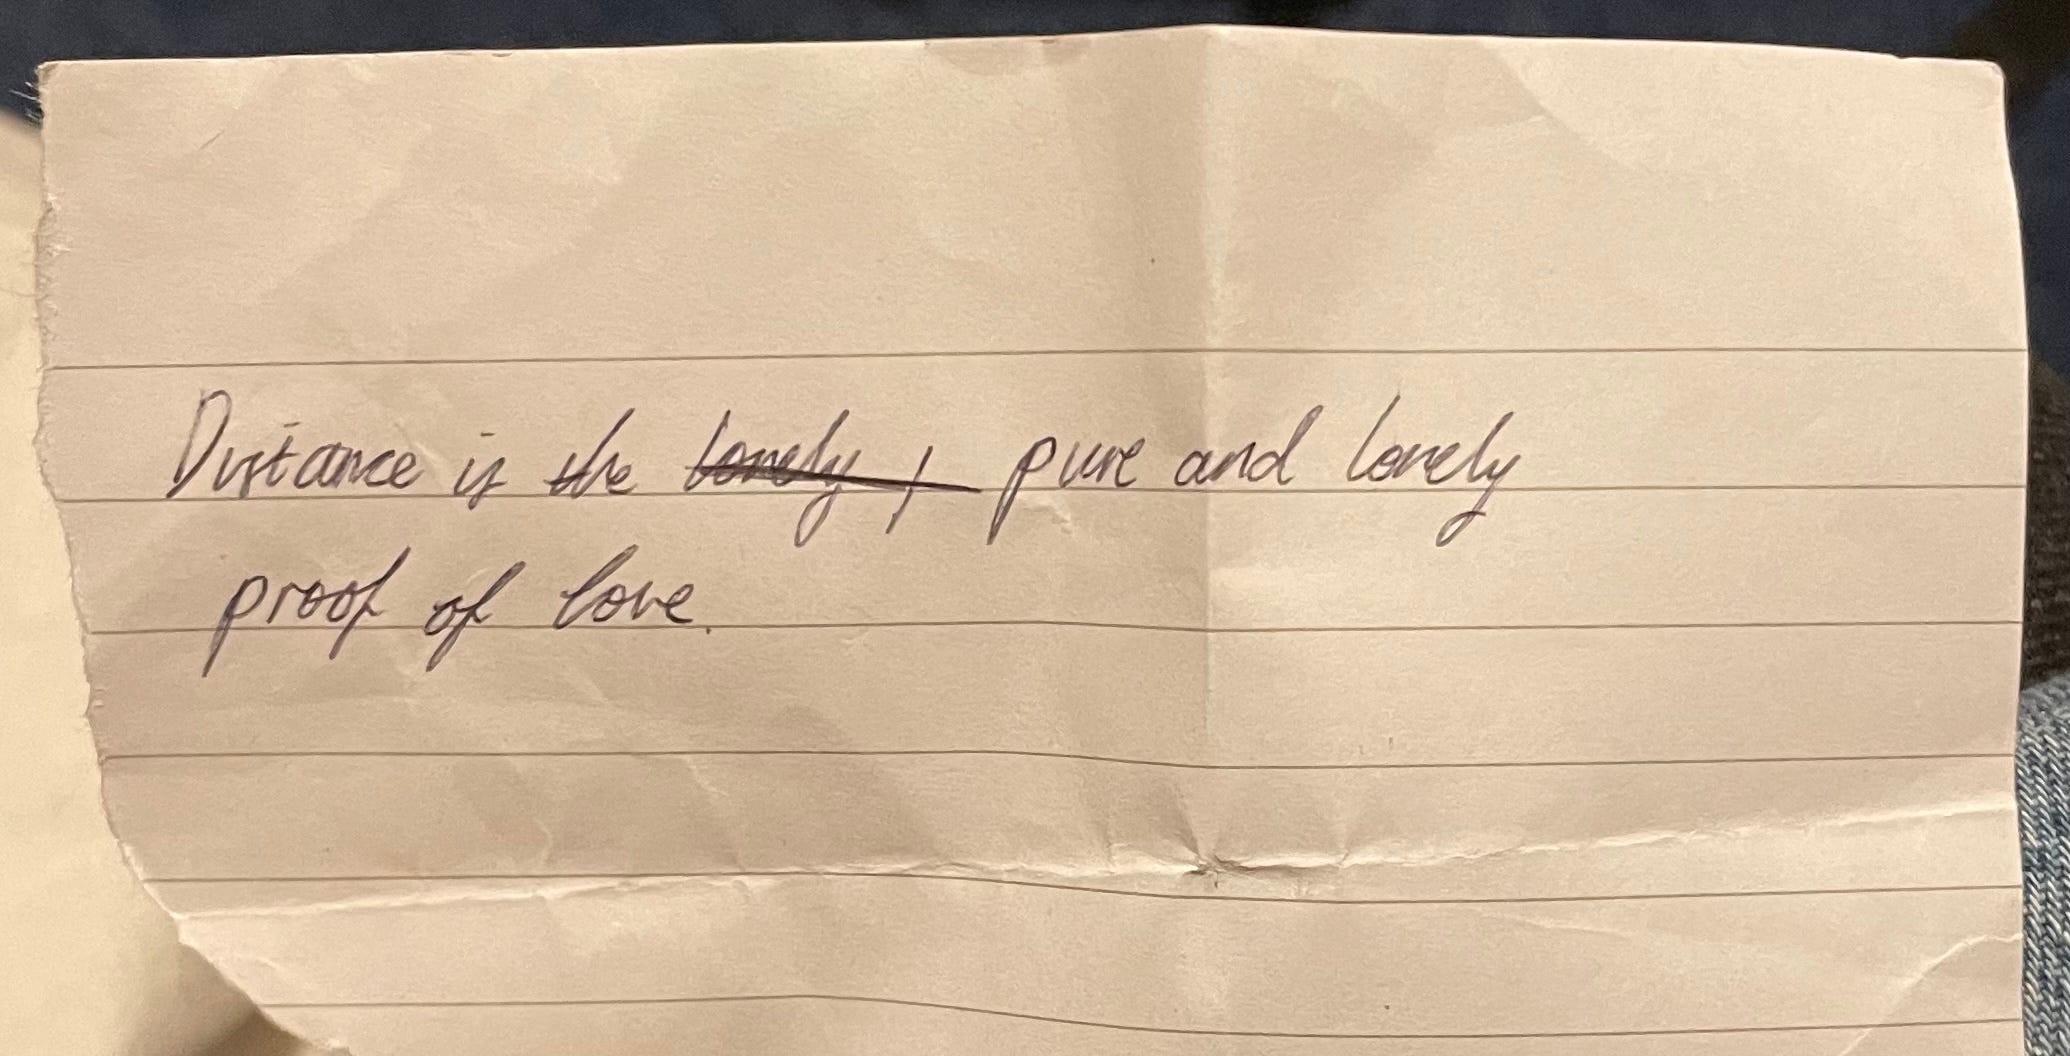 Distance is the lonely, pure and lonely
proof of love.